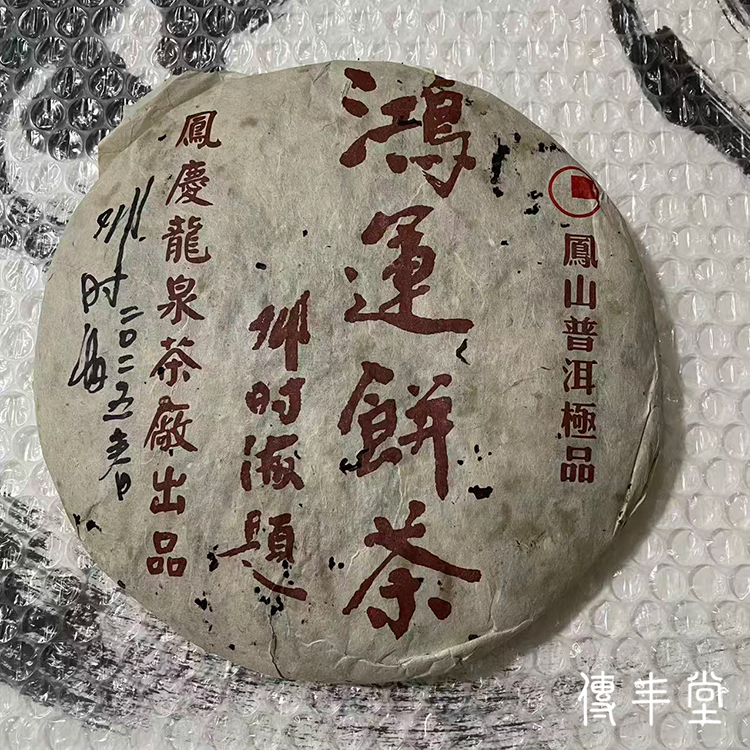 鳳山普洱極品
鴻運餅茶
邓时海題
鳳慶龍泉茶廠出品
邓时海
二〇二五春
傳丰堂